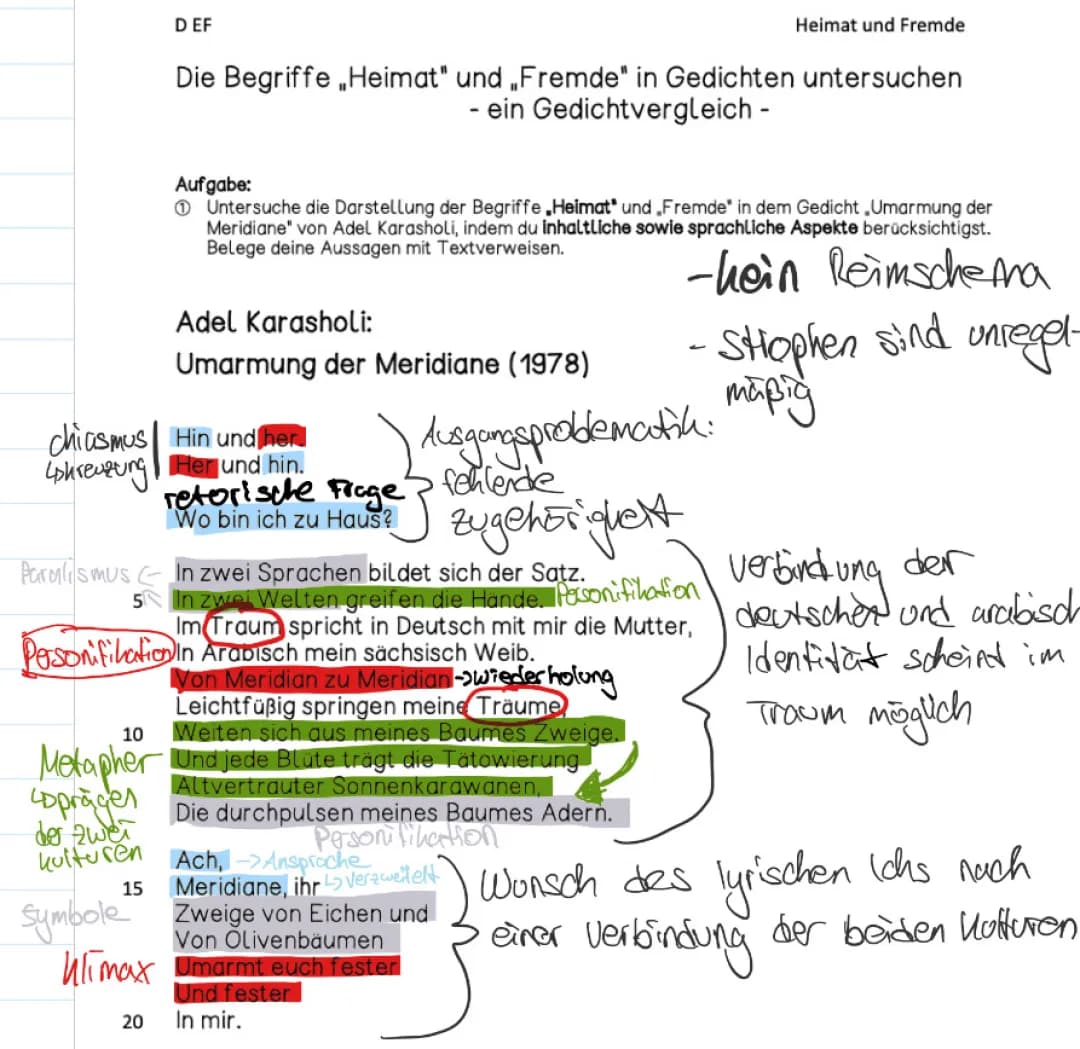 D EF
Heimat und Fremde
Die Begriffe „Heimat" und „Fremde" in Gedichten untersuchen
- ein Gedichtvergleich -
Aufgabe:
① Untersuche die Darstellung der Begriffe „Heimat" und „Fremde" in dem Gedicht „Umarmung der
Meridiane" von Adel Karasholi, indem du inhaltliche sowie sprachliche Aspekte berücksichtigst.
Belege deine Aussagen mit Textverweisen.
- kein Reimschema
- Strophen sind unregel-
mäßig
Adel Karasholi:
Umarmung der Meridiane (1978)
chiasmus
↳kreuzung
Hin und her.
Her und hin.
retorische Frage
Wo bin ich zu Haus?
Ausgangsproblematik:
fehlende
zugehörigkeit
Paralismus ← In zwei Sprachen bildet sich der Satz.
5 In zwei Welten greifen die Hände. Personifikation
Im Traum spricht in Deutsch mit mir die Mutter,
Personifikation In Arabisch mein sächsisch Weib.
Von Meridian zu Meridian → wiederholung
Leichtfüßig springen meine Träume,
10 Weiten sich aus meines Baumes Zweige.
Und jede Blüte trägt die Tätowierung
Altvertrauter Sonnenkarawanen,
Die durchpulsen meines Baumes Adern.
Personifikation
Metapher
↳prägen
der zwei
kulturen
Verbindung der
deutschen und arabisch
Identität scheint im
Traum möglich
Ach, → Ansprache
15 Meridiane, ihr ↳ verzweifelt
Symbole
Zweige von Eichen und
Von Olivenbäumen
Klimax Umarmt euch fester
Und fester
20 In mir.
Wunsch des lyrischen Ichs nach
einer Verbindung der beiden Kulturen